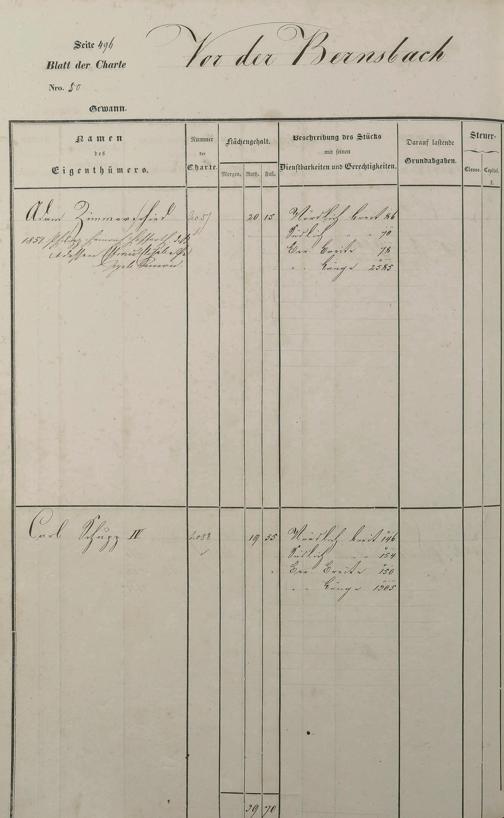 Seite 496
Vor der Bernsbach
Blatt der Charte
Nro. 50
Gewann.
Namen des Eigenthümers.
Nummer der Charte.
Flächengehalt.
Morgen. Ruth. Fuß.
Beschreibung des Stücks mit seinen Dienstbarkeiten und Gerechtigkeiten.
Darauf lastende Grundabgaben.
Steuer-
Classe. Capital.
Adam Zimmerschied
20 15
Nördlich breit 86
Südlich " " 70
Die Breite 78
" " Länge 2585
1851
Carl Schupp IV
2058
19 55
Nördlich breit 146
Südlich " " 154
Die Breite 150
" " Länge 1305
39 70